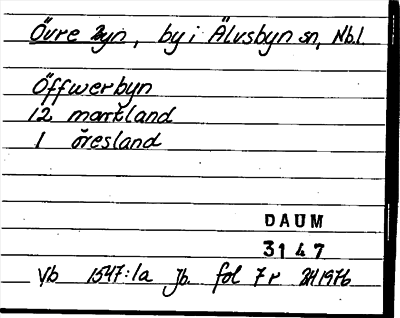 Övre Byn, by i Älvsbyn sn, Nb.l.
Öffwerbyn
12 markland
1 öresland
DAUM
3147
Vb 1547:1a Jb. fol 7r 2/4 1976